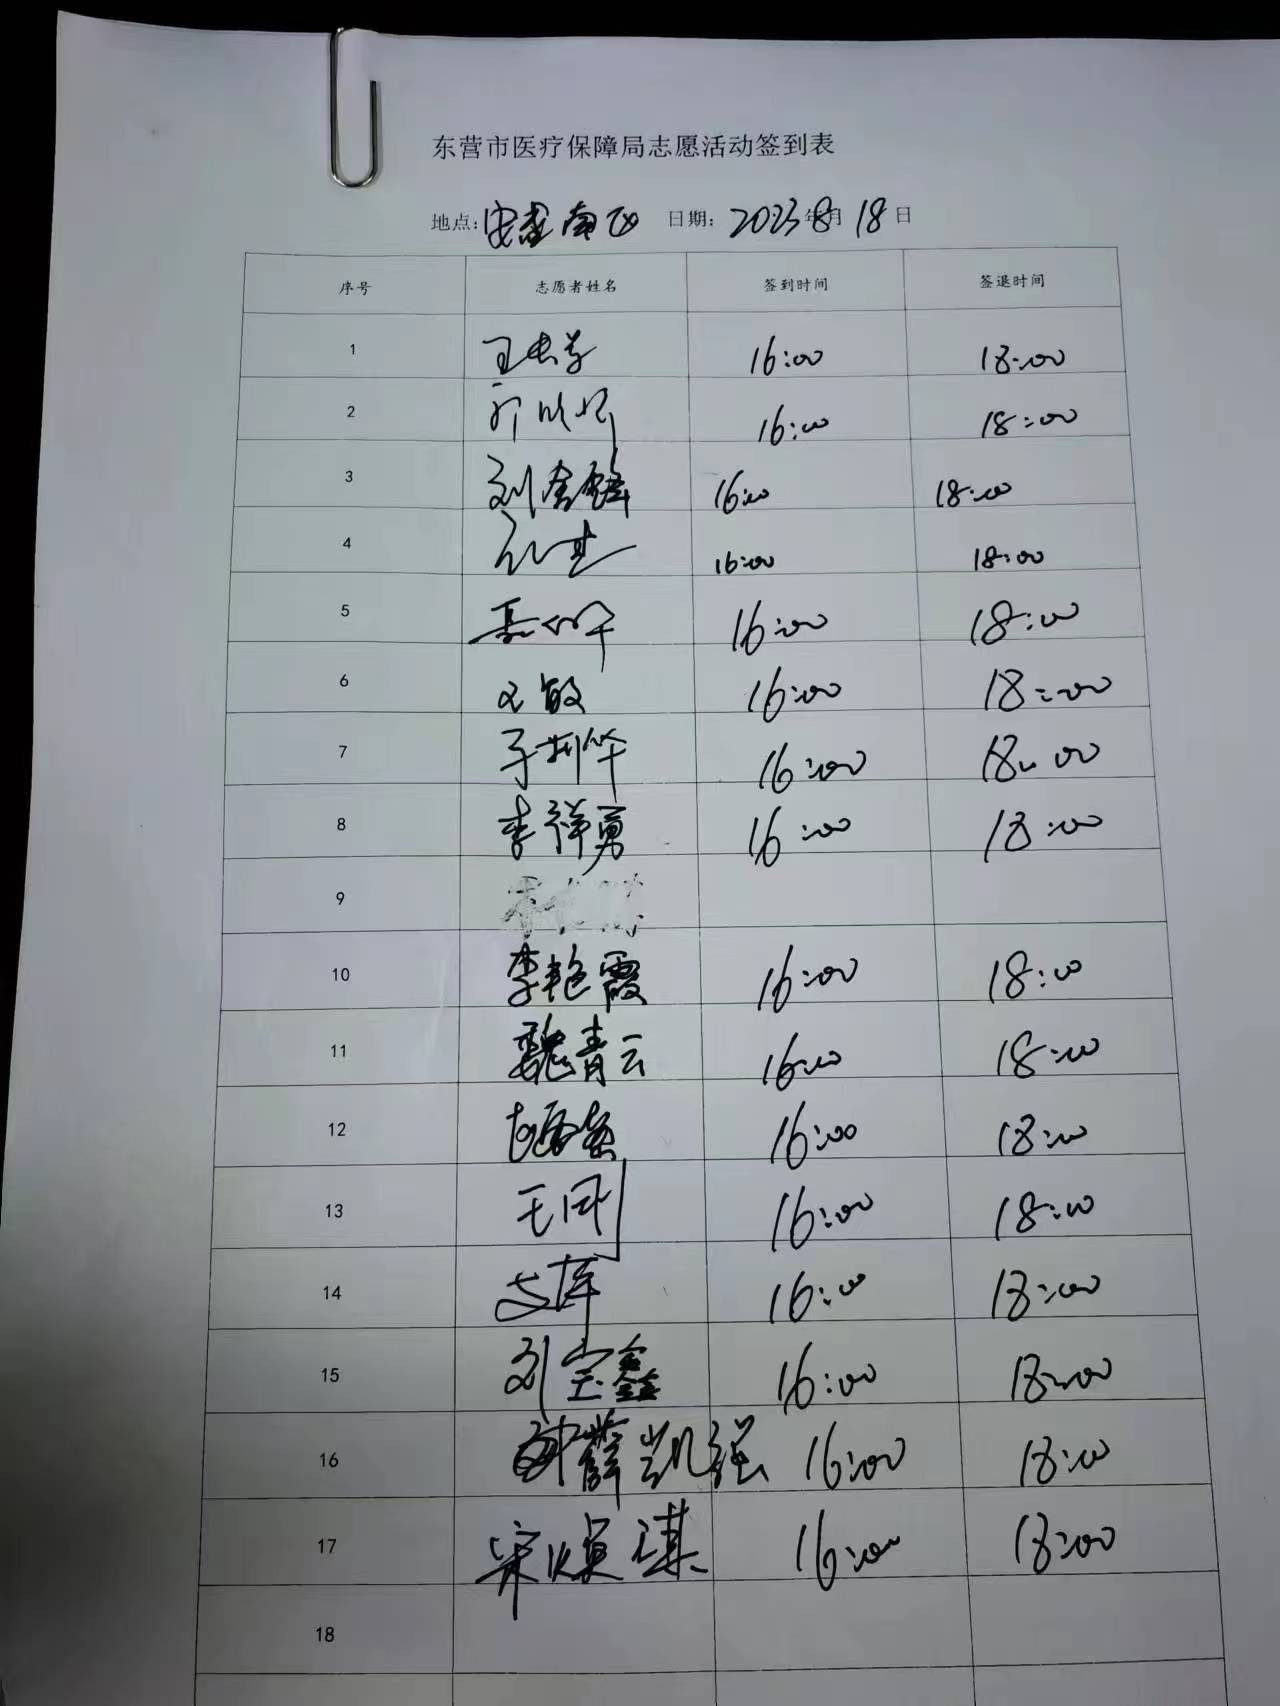 东营市医疗保障局志愿活动签到表
地点: 日期: 2023年8月18日
序号 志愿者姓名 签到时间 签退时间
1 16:00 18:00
2 16:00 18:00
3 16:00 18:00
4 16:00 18:00
5 16:00 18:00
6 王敏 16:00 18:00
7 16:00 18:00
8 李祥勇 16:00 18:00
9
10 李艳霞 16:00 18:00
11 魏青云 16:00 18:00
12 16:00 18:00
13 王刚 16:00 18:00
14 16:00 18:00
15 刘宝鑫 16:00 18:00
16 薛凯强 16:00 18:00
17 宋焕琪 16:00 18:00
18